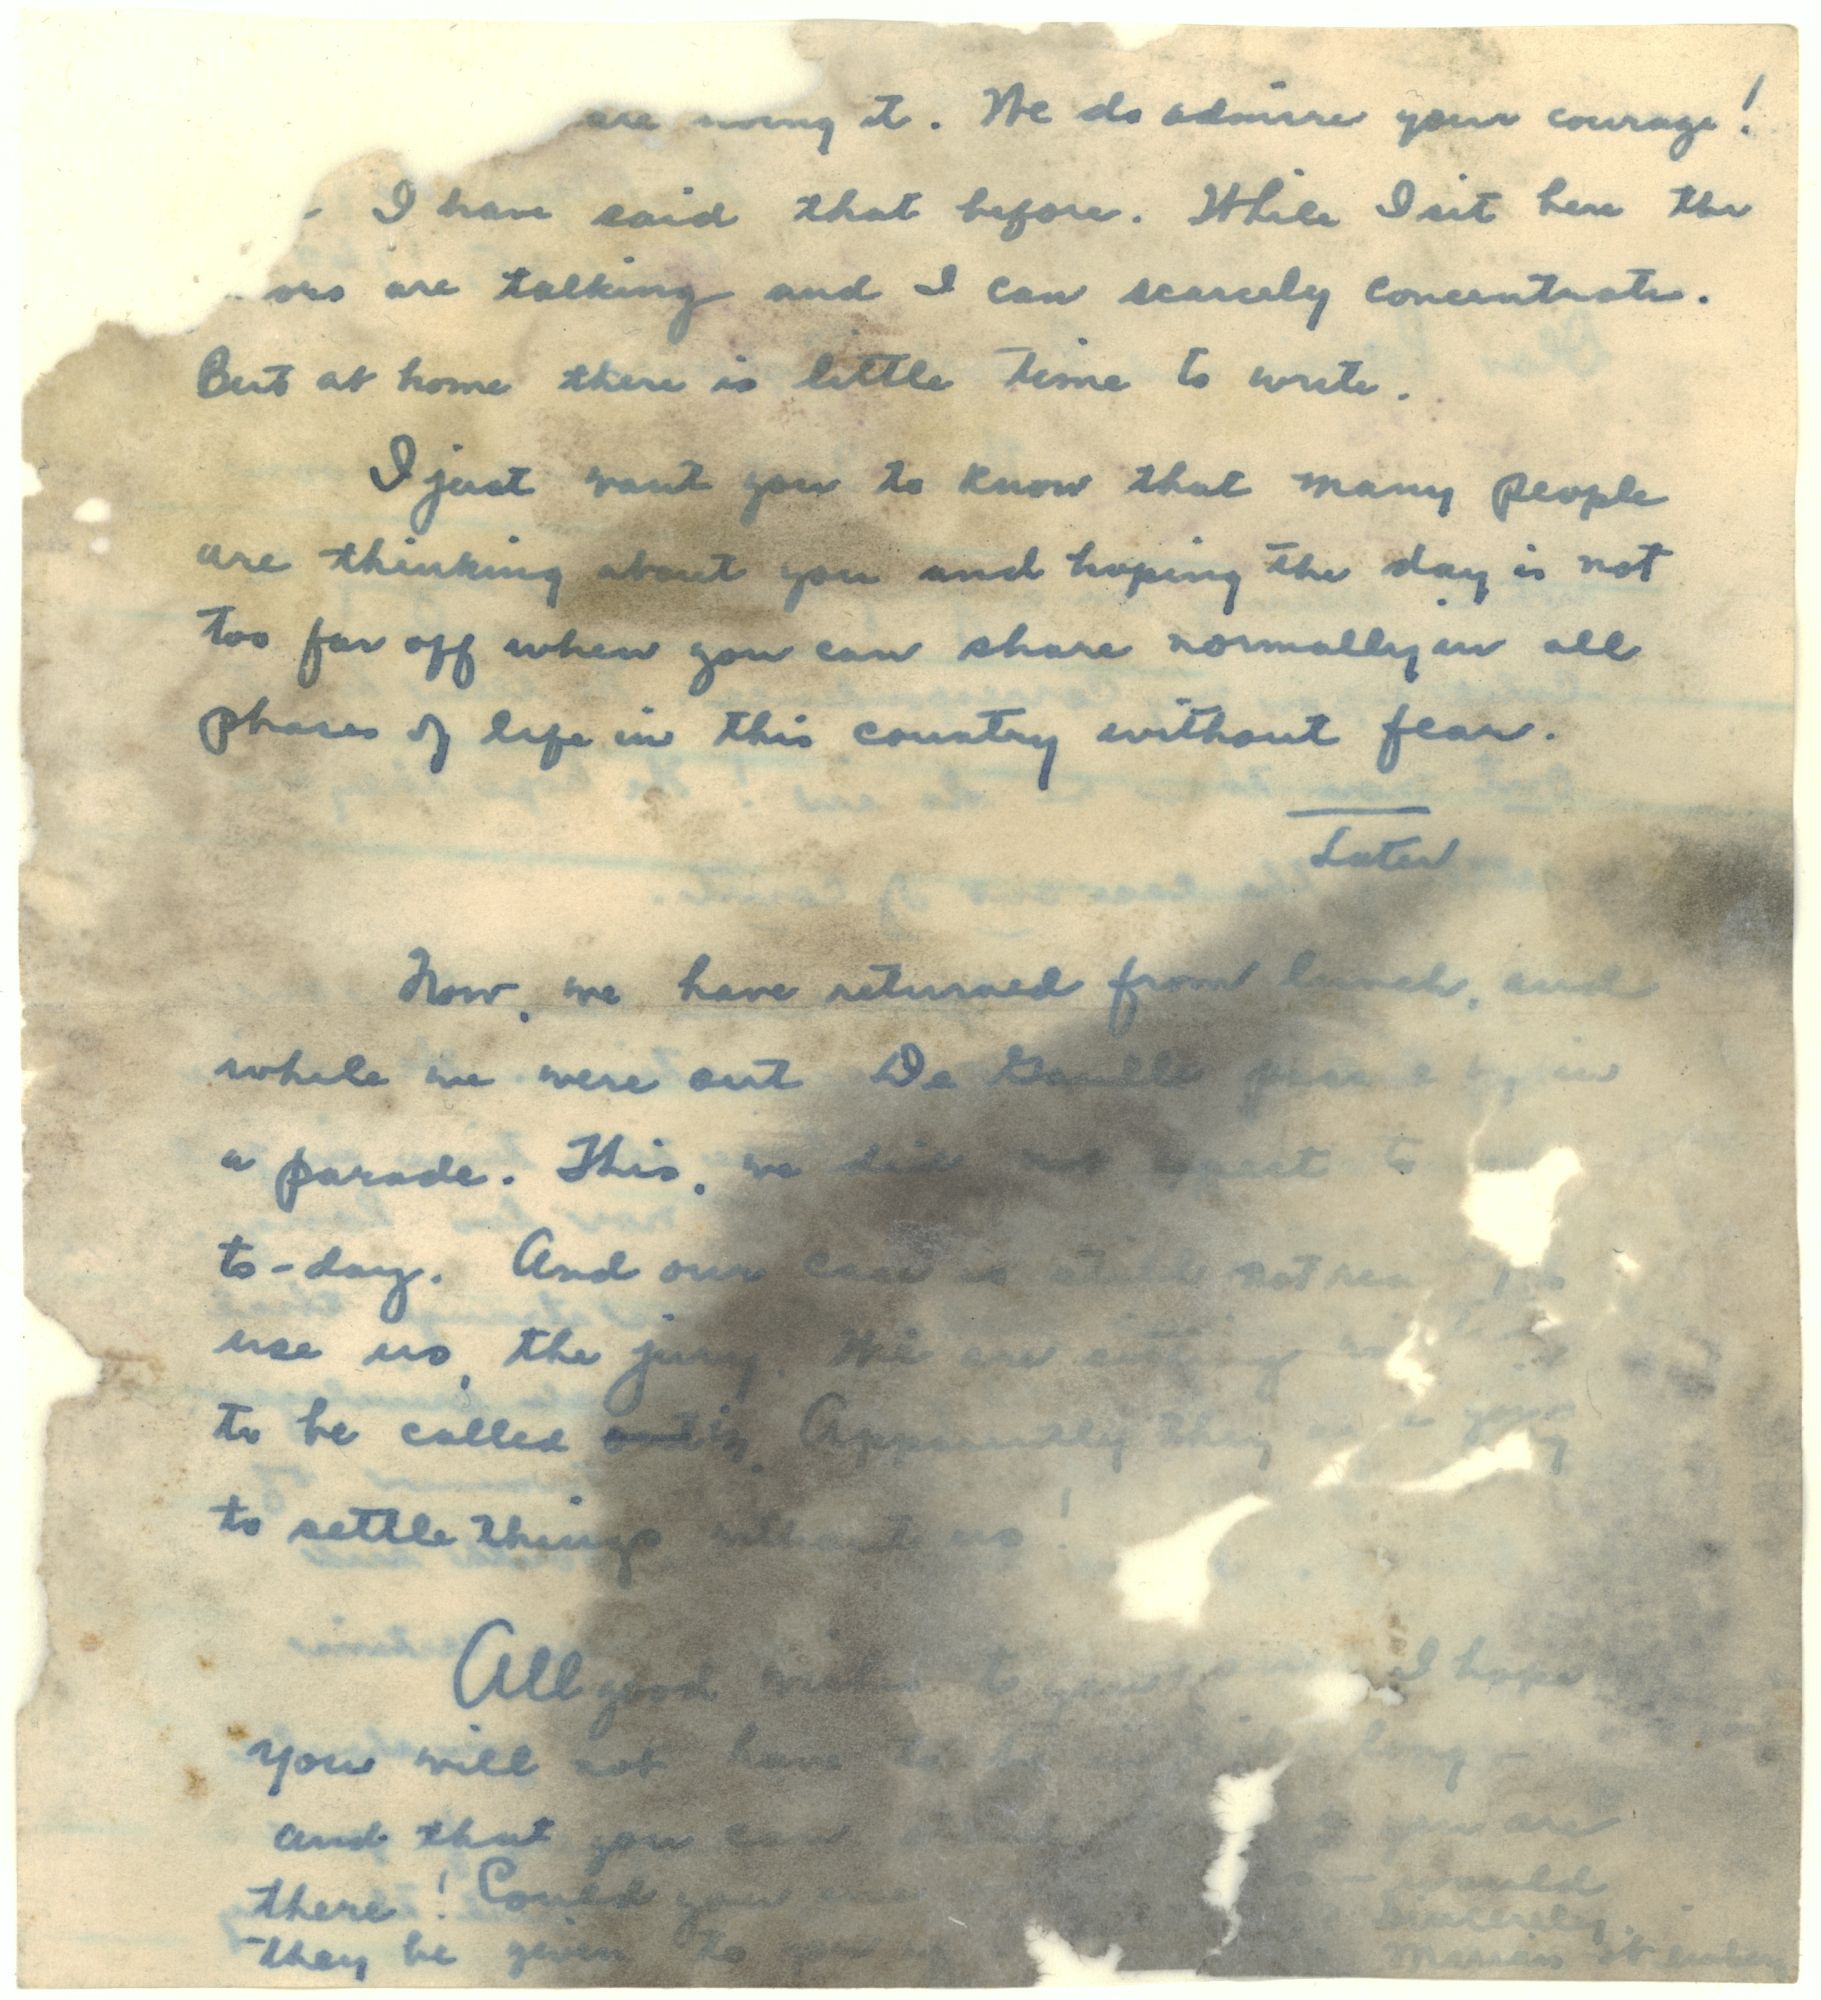 are using it. We do admire your courage!
- I have said that before. While I sit here the
ors are talking and I can scarcely concentrate.
But at home there is little time to write.
I just want you to know that many people
are thinking about you and hoping the day is not
too far off when you can share normally in all
phases of life in this country without fear.
Later
Now, we have returned from lunch, and
while we were out De Gaulle passed by in
a parade. This, we did not expect to
to-day. And our case is still not
use us, the jury. We are sitting
to be called in. Apparently they
to settle things without us!
All good wishes to I hope
you will not have to be long -
and that you can you are
there! Could you - would
they be given to you Sincerely,
Marion